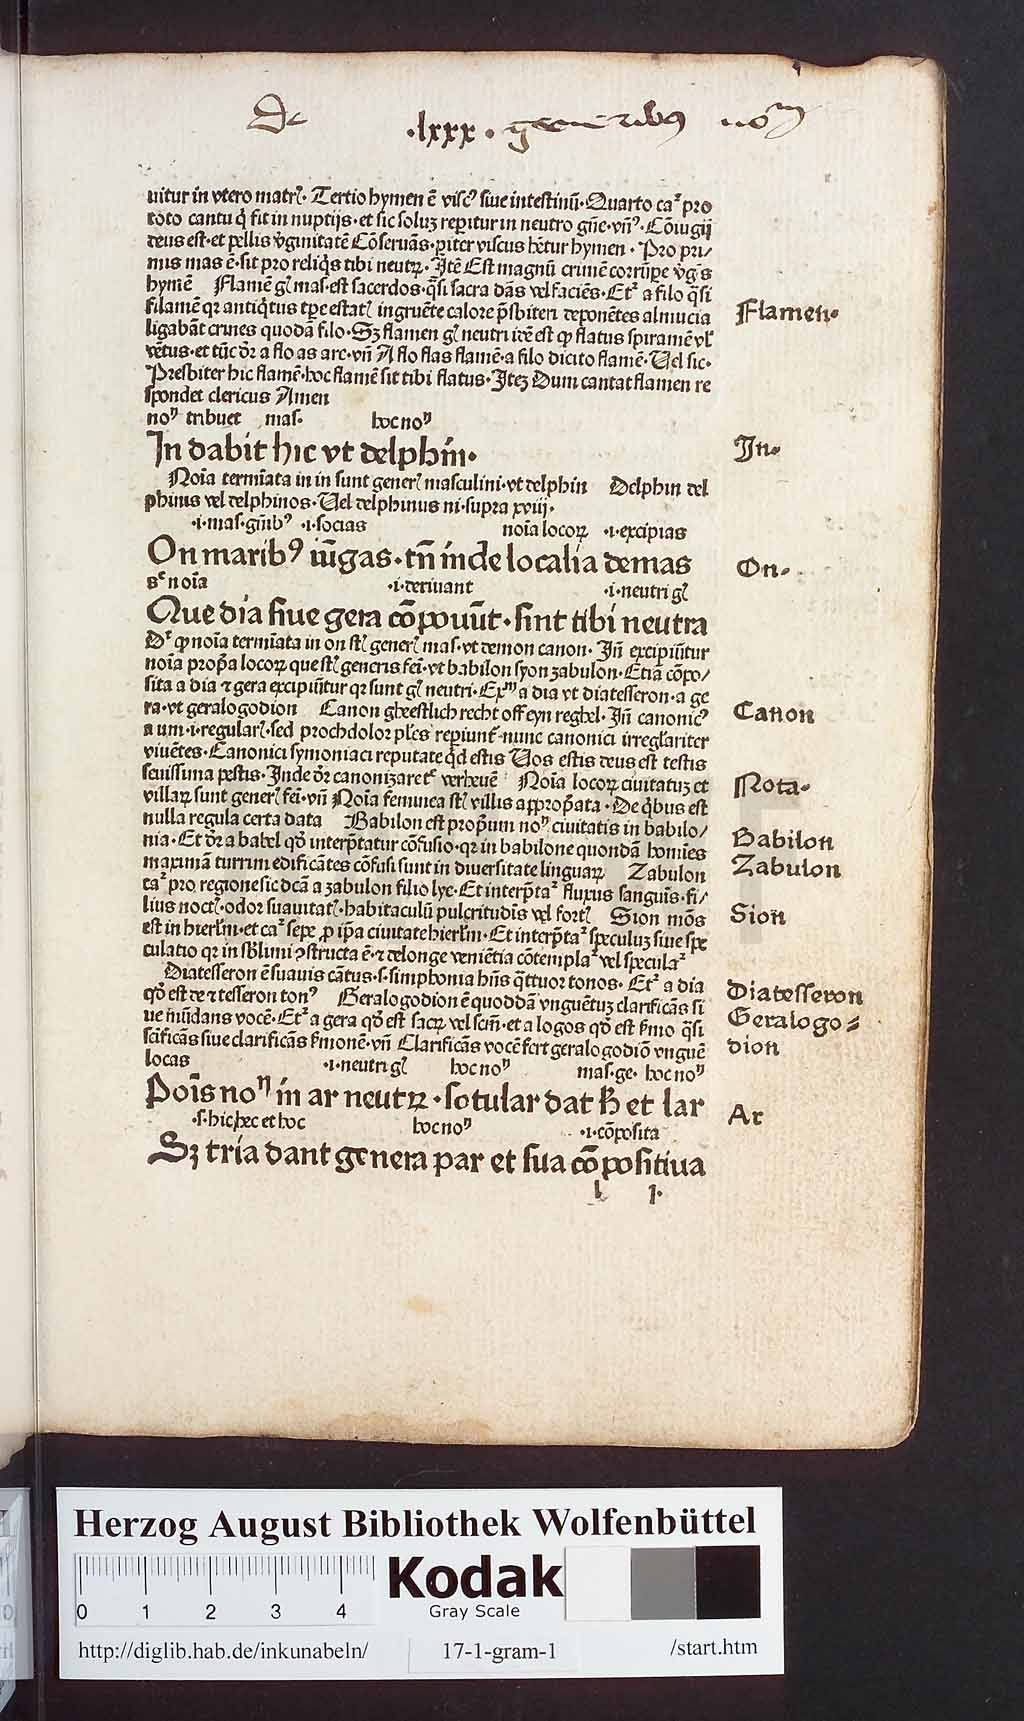 De .lxxx. generibus noᵐ
uitur in vtero matrꝭ. Tertio hymen ē viscꝰ siue intestinū. Quarto caꝛ pro
toto cantu q̇ fit in nuptijs. et sic soluꝫ reꝑitur in neutro gn̄e. vn̄ꝰ. Cōiugij
deus est. et pellis v̇ginitatē Cōseruās. ꝑiter viscus hr̄tur hymen. Pro pri/
mis mas ē. sit pro reliq̇s tibi neutꝝ. Itē Est magnū crimē corrūꝑe v̇g̈s
hymē Flamē gꝭ mas. est sacerdos. q̄si sacra dās vel faciēs. Etꝛ a filo q̄si
filamē qꝛ antiq̇tus tꝑe estatꝭ ingruēte calore p̄sbiteri deponētes almucia
ligabāt crines quodā filo. Sꝫ flamen gꝭ neutri idē est qꝙ flatus spiramē vl̓
vētus. et tūc dr̄ a flo as are. vn̄ A flo flas flamē. a filo dicito flamē. Uel sic.
Presbiter hic flamē. hoc flamē sit tibi flatus. Iteꝫ Dum cantat flamen re
spondet clericus Amen
Flamen.
noⁿ tribuet mas. hoc noⁿ
In dabit hic vt delphin.
In.
Noīa termīata in in sunt generꝭ masculini. vt delphin Delphin del
phinus vel delphinos. Uel delphinus ni. supra xviij.
.i. mas. gn̄ibꝰ .i. socias noīa locoꝝ .i. excipias
On maribꝰ iūgas. tn̄ inde localia demas
On.
sᶜ noīa .i. deriuant .i. neutri gꝭ
Que dia siue gera cōpoūut. sint tibi neutra
Dꝛ qꝙ noīa termīata in on st̄ generꝭ mas. vt demon canon. In̄ excipiūtur
noīa prop̄a locoꝝ que st̄ generis fei. vt babilon syon zabulon. Etiā cōpo/
sita a dia ⁊ gera excipiūtur qꝛ sunt gꝭ neutri. Exᵐ a dia vt diatesseron. a ge
ra. vt geralogodion Canon gheestlich recht off eyn reghel. In̄ canonicꝰ
Canon
a um. i. regularꝭ. sed prochdolor pl̄es reꝑiunt̄. nunc canonici irregl̓ariter
viuētes. Canonici symoniaci reputate q̇d estis Uos estis deus est testis
seuissima pestis. Inde dr̄ canonizare tᶜ verheuē Noīa locoꝝ ciuitatuꝫ et
Nota.
villaꝝ sunt generꝭ fei. vn̄ Noīa feminea st̄ villis appropᵃta. De q̇bus est
nulla regula certa data Babilon est propⁱum noⁿ ciuitatis in babilo/
Babilon
nia. Et dr̄ a babel qď interp̄tatur cōfusio. qꝛ in babilone quondā homīes
maximā turrim edificātes cōfusi sunt in diuersitate linguaꝝ Zabulon
Zabulon
caꝛ pro regione sic dc̄a a zabulon filio lye. Et interp̄taꝛ fluxus sanguīs. fi/
lius noctꝭ. odor suauitatꝭ. habitaculū pulcritudīs vel fortꝭ Sion mōs
Sion
est in hierl̄m. et caꝛ sepe ꝓ ip̄a ciuitate hierl̄m. Et interp̄taꝛ speculuꝫ siue spe
culatio qꝛ in sb̄limi ꝯstructa ē. ⁊ delonge veniētia cōtemplaꝛ vel speculaꝛ
Diatesseron ē suauis cātus. s. simphonia hn̄s q̄ttuor tonos. Etꝛ a dia
Diatesseron
qď est de ⁊ tesseron tonꝰ Geralogodion ē quoddā vnguētuꝫ clarificās si
Geralogo=
ue mūdans vocē. Etꝛ a gera qď est sacꝝ vel scm̄. et a logos qď est ẜmo q̄si
scīficās siue clarificās ẜmonē. vn̄ Clarificās vocē fert geralogodiō vnguē
dion
locas .i. neutri gꝭ hoc noⁿ mas. ge. hoc noⁿ
Poīs noⁿ in ar neutꝝ. sotular dat ħ et lar
Ar
.s. hic hec et hoc hoc noⁿ .i. cōposita
Sꝫ tria dant genera par et sua cōpositiua
l j.
Herzog August Bibliothek Wolfenbüttel
0 1 2 3 4
Kodak
Gray Scale
http://diglib.hab.de/inkunabeln/ 17-1-gram-1 /start.htm